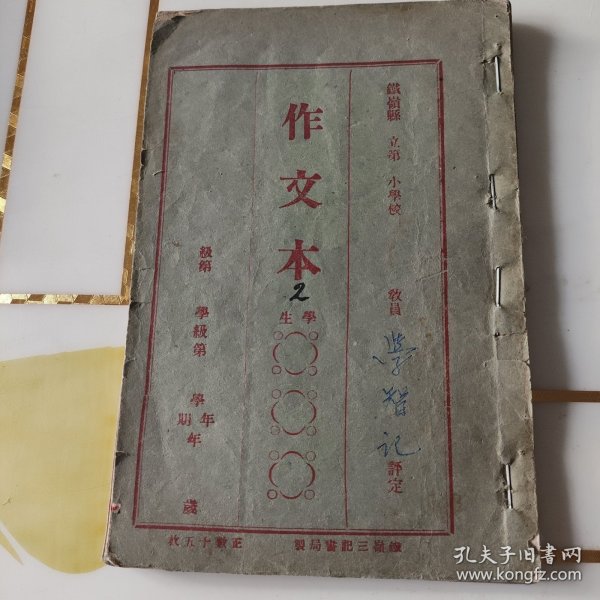 鐵嶺縣 立第 小學校 教員 評定
作文本
2
學生
級第 學級第 學年 學期 年 歲
鐵嶺三記書局製
正數十五枚
孔夫子旧书网
www.kongfz.com